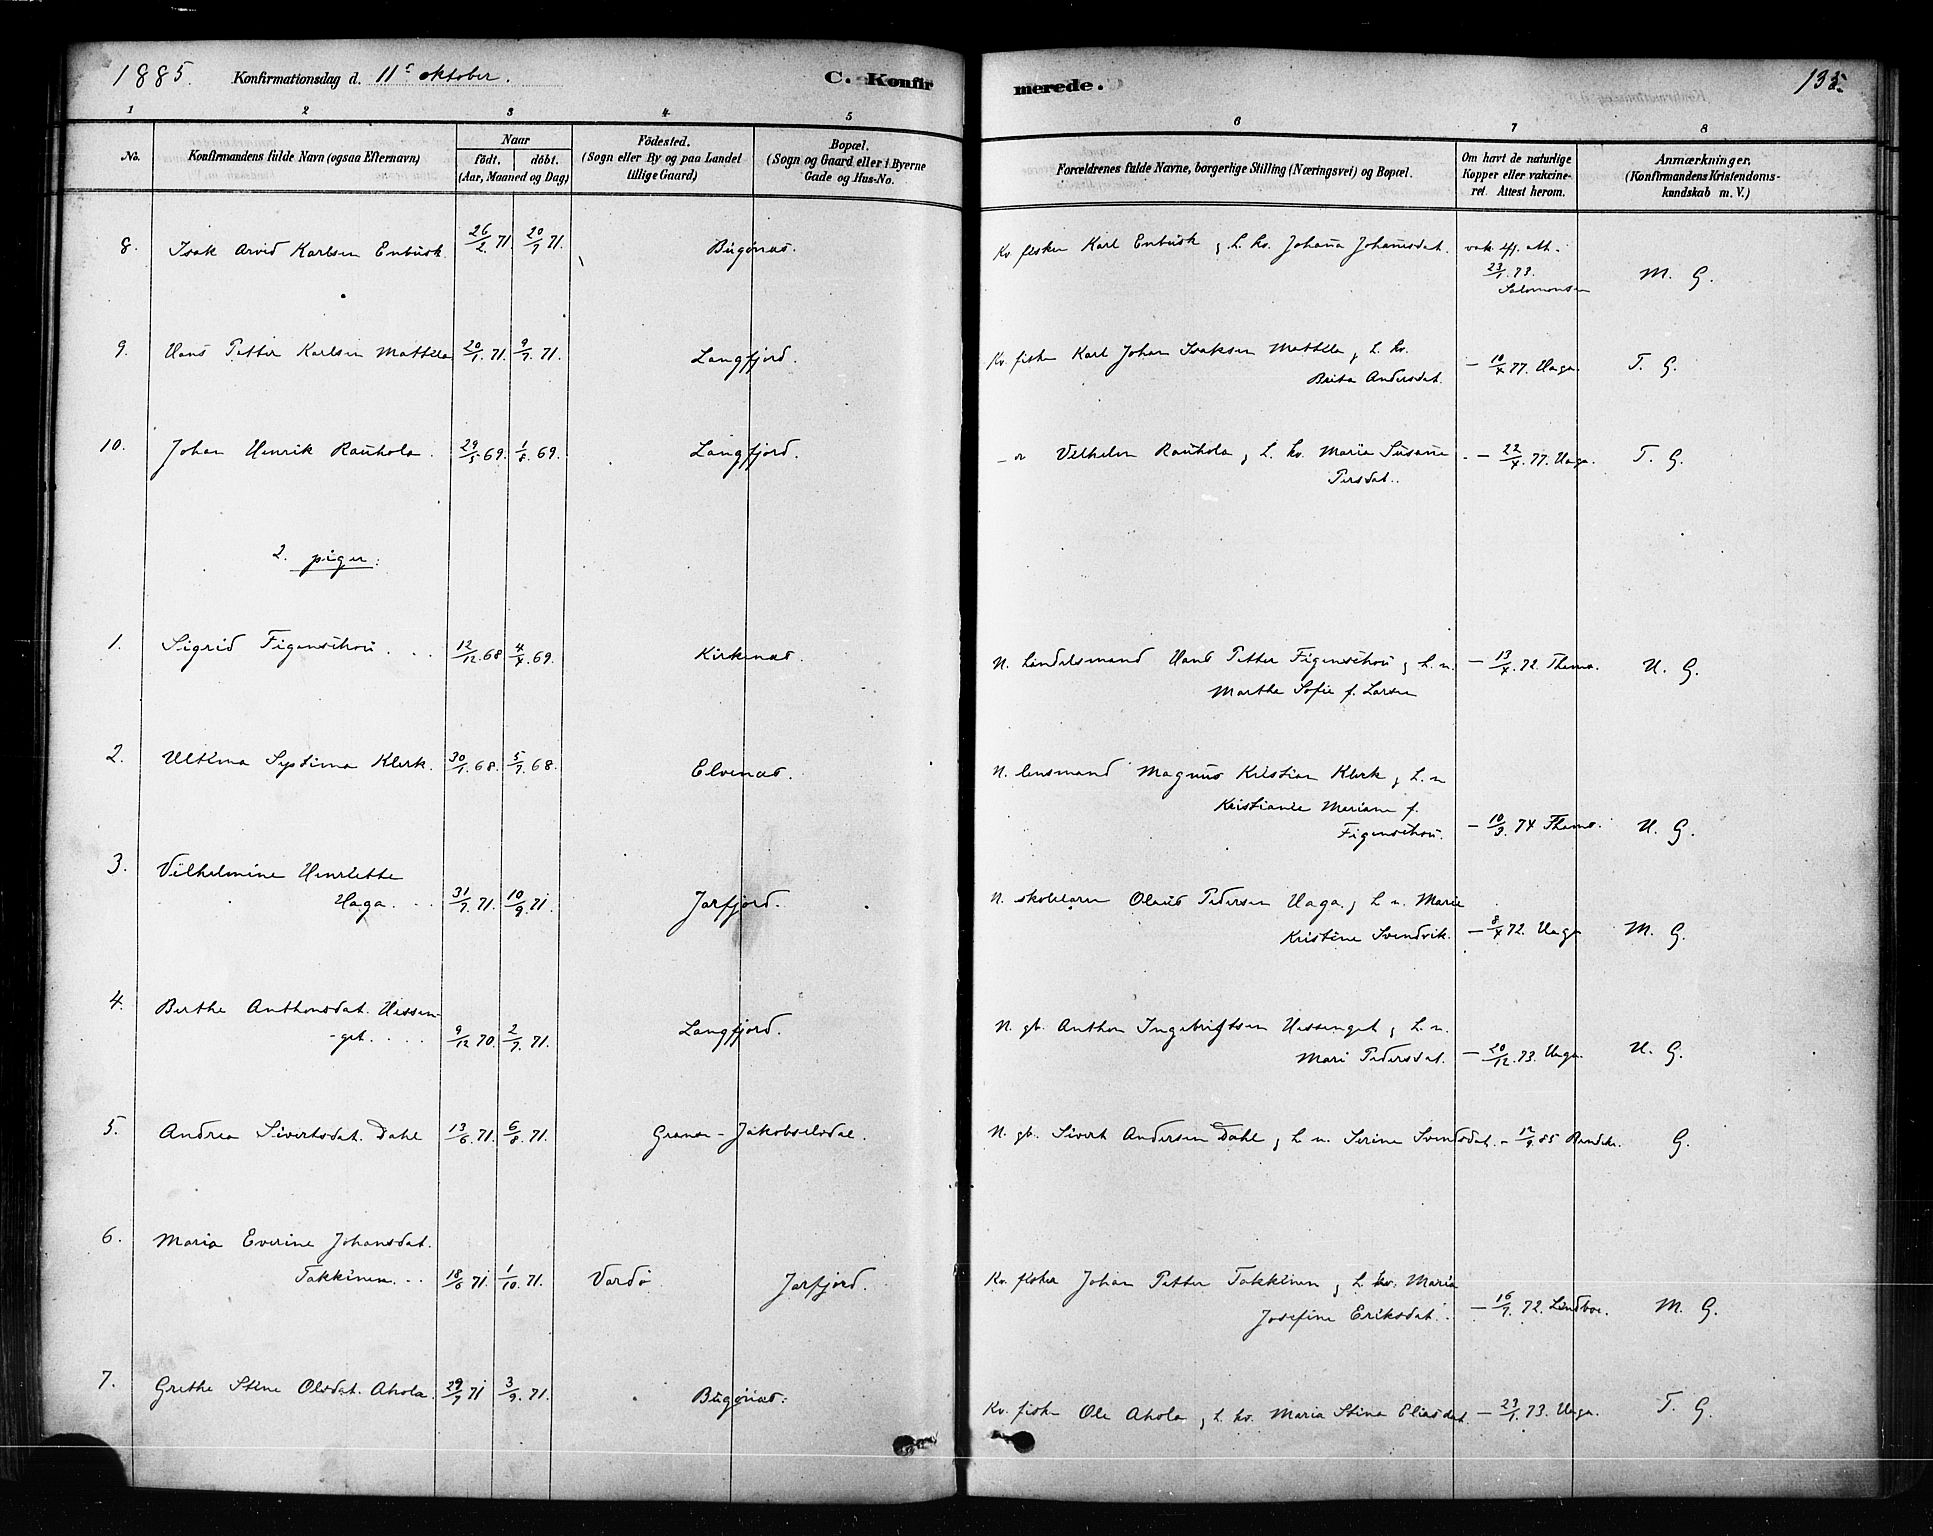 1885. Konfirmationsdag d. 11te oktober. C. Konfir merede. 135.
1 2 3 4 5 6 7 8
No. Konfirmandens fulde Navn (ogsaa Efternavn) Naar født. døbt. (Aar, Maaned og Dag) Fødested. (Sogn eller By og paa Landet tillige Gaard) Bopæl. (Sogn og Gaard eller i Byerne Gade og Hus-No. Forældrenes fulde Navne, borgerlige Stilling (Næringsvei) og Bopæl. Om havt de naturlige Kopper eller vakcineret. Attest herom. Anmærkninger. (Konfirmandens Kristendomskundskab m. V.)
8. Isak Arvid Karlsen Enbusk 26/2 71. 20/7 71. Bugønæs. Kv. fisker Karl Enbusk & h. kv. Johana Johansdat. vak. efl. att.
23/1 73.
Salomonsen M. G.
9. Hans Petter Karlsen Mattila 20/1 71. 9/7 71. Langfjord. Kv. fisker Karl Johan Isaksen Mattila & h. kv.
Brita Andersdat. – 10/4 77. Haga. T. G.
10. Johan Henrik Rauhola. 29/5 69. 1/8 69. Langfjord. Vilhelm Rauhola & h. kv. Maria Susane
Persdat. – 22/4 77. Haga. T. G.
2. piger.
1. Sigrid Figenschou . . 12/12 68 4/4 69. Kirkenæs. N. Lendsmand Hans Petter Figenschou & h. n.
Marthe Sofie f. Larsen – 13/4 72 Thams. U. G.
2. Ultima Systima Klerk. 30/1 68. 5/7 68. Elvenæs. N. lensmand Magnus Kristian Klerk & h. n
Kristiane Mariane f.
Figenschou. – 10/3 74 Thams. U. G.
3. Vilhelmine Henriette
Haga . . 31/7 71. 10/9 71. Jarfjord. N. skolelærer Olaus Pedersen Haga & h n. Marie
Kristine Svendvik. – 8/4 72. Haga M. G.
4. Berthe Anthonsdat. Hessen-
-get. . . . 9/12 70. 2/7 71. Langfjord. N. gb. Anthon Ingebrigtsen Hessenget & h. n.
Mari Pedersdat. – 20/12 73. Haga. U. G.
5. Andrea Sivertsdat. Dahl 13/6 71. 6/8 71. Jakobselvdal. N. gb. Sivert Andersen Dahl & h n. Serine Svendsdat. – 12/9 85 G.
6. Maria Everine Johansdat.
Takkinen. . . 18/6 71. 1/10 71. Vardø Jarfjord. Kv. fisker Johan Petter Takkinen & h kv. Maria
Josefine Eriksdat. – 16/7 72. Lindboe. M. G.
7. Grethe Stine Olsdat. Ahola. 29/7 71 3/9 71. Bugønæs. Kv. fisker Ole Ahola & h. kv. Maria Stina Eliasdat. – 23/1 73. Haga. T. G.